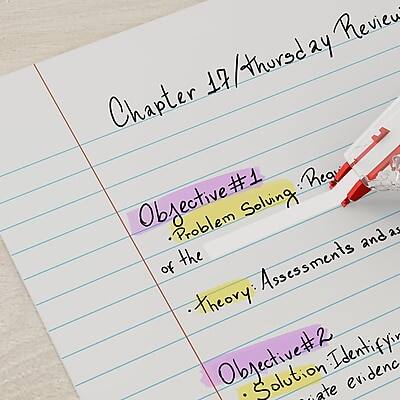 Chapter 17/Thursday Review
Objective #1
• Problem Solving:
of the
• Theory: Assessments and
Objective #2
• Solution: Identifying
evidence